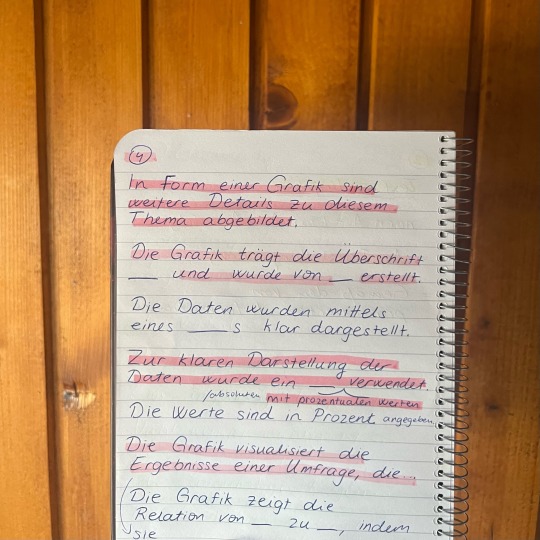 4
In Form einer Grafik sind
weitere Details zu diesem
Thema abgebildet.
Die Grafik trägt die Überschrift
__ und wurde von __ erstellt.
Die Daten wurden mittels
eines ___ s klar dargestellt.
Zur klaren Darstellung der
Daten wurde ein ___ verwendet.
/absoluten mit prozentualen werten
Die Werte sind in Prozent angegeben.
Die Grafik visualisiert die
Ergebnisse einer Umfrage, die...
Die Grafik zeigt die
Relation von __ zu __, indem
sie